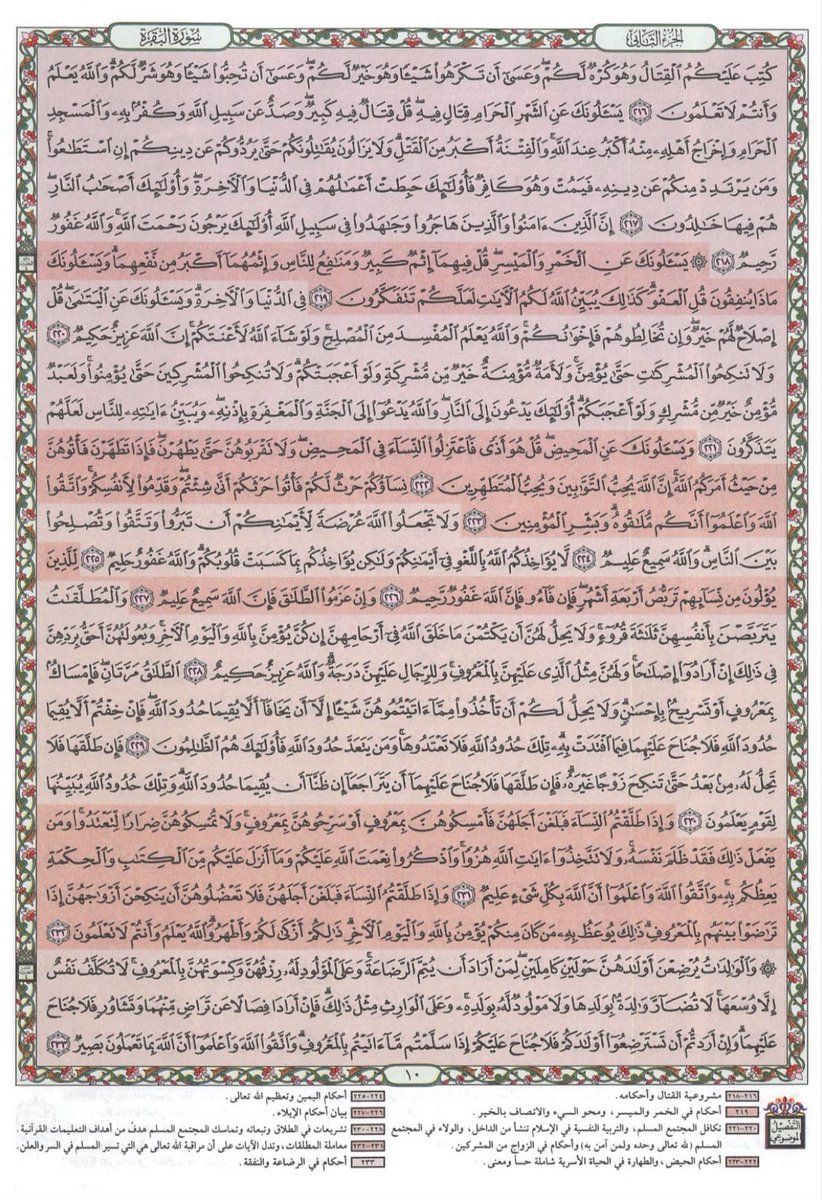 الجزء الثاني
سورة البقرة
كُتِبَ عَلَيْكُمُ ٱلْقِتَالُ وَهُوَ كُرْهٌ لَّكُمْ ۖ وَعَسَىٰٓ أَن تَكْرَهُوا۟ شَيْـًٔا وَهُوَ خَيْرٌ لَّكُمْ ۖ وَعَسَىٰٓ أَن تُحِبُّوا۟ شَيْـًٔا وَهُوَ شَرٌّ لَّكُمْ ۗ وَٱللَّهُ يَعْلَمُ
وَأَنتُمْ لَا تَعْلَمُونَ ٢١٦ يَسْـَٔلُونَكَ عَنِ ٱلشَّهْرِ ٱلْحَرَامِ قِتَالٍ فِيهِ ۖ قُلْ قِتَالٌ فِيهِ كَبِيرٌ ۖ وَصَدٌّ عَن سَبِيلِ ٱللَّهِ وَكُفْرٌۢ بِهِۦ وَٱلْمَسْجِدِ
ٱلْحَرَامِ وَإِخْرَاجُ أَهْلِهِۦ مِنْهُ أَكْبَرُ عِندَ ٱللَّهِ ۚ وَٱلْفِتْنَةُ أَكْبَرُ مِنَ ٱلْقَتْلِ ۗ وَلَا يَزَالُونَ يُقَـٰتِلُونَكُمْ حَتَّىٰ يَرُدُّوكُمْ عَن دِينِكُمْ إِنِ ٱسْتَطَـٰعُوا۟ ۚ
وَمَن يَرْتَدِدْ مِنكُمْ عَن دِينِهِۦ فَيَمُتْ وَهُوَ كَافِرٌ فَأُو۟لَـٰٓئِكَ حَبِطَتْ أَعْمَـٰلُهُمْ فِى ٱلدُّنْيَا وَٱلْـَٔاخِرَةِ ۖ وَأُو۟لَـٰٓئِكَ أَصْحَـٰبُ ٱلنَّارِ ۖ
هُمْ فِيهَا خَـٰلِدُونَ ٢١٧ إِنَّ ٱلَّذِينَ ءَامَنُوا۟ وَٱلَّذِينَ هَاجَرُوا۟ وَجَـٰهَدُوا۟ فِى سَبِيلِ ٱللَّهِ أُو۟لَـٰٓئِكَ يَرْجُونَ رَحْمَتَ ٱللَّهِ ۚ وَٱللَّهُ غَفُورٌ
رَّحِيمٌ ٢١٨ ۞ يَسْـَٔلُونَكَ عَنِ ٱلْخَمْرِ وَٱلْمَيْسِرِ ۖ قُلْ فِيهِمَآ إِثْمٌ كَبِيرٌ وَمَنَـٰفِعُ لِلنَّاسِ وَإِثْمُهُمَآ أَكْبَرُ مِن نَّفْعِهِمَا ۗ وَيَسْـَٔلُونَكَ
مَاذَا يُنفِقُونَ قُلِ ٱلْعَفْوَ ۗ كَذَٰلِكَ يُبَيِّنُ ٱللَّهُ لَكُمُ ٱلْـَٔايَـٰتِ لَعَلَّكُمْ تَتَفَكَّرُونَ ٢١٩ فِى ٱلدُّنْيَا وَٱلْـَٔاخِرَةِ ۗ وَيَسْـَٔلُونَكَ عَنِ ٱلْيَتَـٰمَىٰ ۖ قُلْ
إِصْلَاحٌ لَّهُمْ خَيْرٌ ۖ وَإِن تُخَالِطُوهُمْ فَإِخْوَٰنُكُمْ ۚ وَٱللَّهُ يَعْلَمُ ٱلْمُفْسِدَ مِنَ ٱلْمُصْلِحِ ۚ وَلَوْ شَآءَ ٱللَّهُ لَأَعْنَتَكُمْ ۚ إِنَّ ٱللَّهَ عَزِيزٌ حَكِيمٌ ٢٢٠
وَلَا تَنكِحُوا۟ ٱلْمُشْرِكَـٰتِ حَتَّىٰ يُؤْمِنَّ ۚ وَلَأَمَةٌ مُّؤْمِنَةٌ خَيْرٌ مِّن مُّشْرِكَةٍ وَلَوْ أَعْجَبَتْكُمْ ۗ وَلَا تُنكِحُوا۟ ٱلْمُشْرِكِينَ حَتَّىٰ يُؤْمِنُوا۟ ۚ وَلَعَبْدٌ
مُّؤْمِنٌ خَيْرٌ مِّن مُّشْرِكٍ وَلَوْ أَعْجَبَكُمْ ۗ أُو۟لَـٰٓئِكَ يَدْعُونَ إِلَى ٱلنَّارِ ۖ وَٱللَّهُ يَدْعُوٓا۟ إِلَى ٱلْجَنَّةِ وَٱلْمَغْفِرَةِ بِإِذْنِهِۦ ۖ وَيُبَيِّنُ ءَايَـٰتِهِۦ لِلنَّاسِ لَعَلَّهُمْ
يَتَذَكَّرُونَ ٢٢١ وَيَسْـَٔلُونَكَ عَنِ ٱلْمَحِيضِ ۖ قُلْ هُوَ أَذًى فَٱعْتَزِلُوا۟ ٱلنِّسَآءَ فِى ٱلْمَحِيضِ ۖ وَلَا تَقْرَبُوهُنَّ حَتَّىٰ يَطْهُرْنَ ۖ فَإِذَا تَطَهَّرْنَ فَأْتُوهُنَّ
مِنْ حَيْثُ أَمَرَكُمُ ٱللَّهُ ۚ إِنَّ ٱللَّهَ يُحِبُّ ٱلتَّوَّٰبِينَ وَيُحِبُّ ٱلْمُتَطَهِّرِينَ ٢٢٢ نِسَآؤُكُمْ حَرْثٌ لَّكُمْ فَأْتُوا۟ حَرْثَكُمْ أَنَّىٰ شِئْتُمْ ۖ وَقَدِّمُوا۟ لِأَنفُسِكُمْ ۚ وَٱتَّقُوا۟
ٱللَّهَ وَٱعْلَمُوٓا۟ أَنَّكُم مُّلَـٰقُوهُ ۗ وَبَشِّرِ ٱلْمُؤْمِنِينَ ٢٢٣ وَلَا تَجْعَلُوا۟ ٱللَّهَ عُرْضَةً لِّأَيْمَـٰنِكُمْ أَن تَبَرُّوا۟ وَتَتَّقُوا۟ وَتُصْلِحُوا۟
بَيْنَ ٱلنَّاسِ ۗ وَٱللَّهُ سَمِيعٌ عَلِيمٌ ٢٢٤ لَّا يُؤَاخِذُكُمُ ٱللَّهُ بِٱللَّغْوِ فِىٓ أَيْمَـٰنِكُمْ وَلَـٰكِن يُؤَاخِذُكُم بِمَا كَسَبَتْ قُلُوبُكُمْ ۗ وَٱللَّهُ غَفُورٌ حَلِيمٌ ٢٢٥ لِّلَّذِينَ
يُؤْلُونَ مِن نِّسَآئِهِمْ تَرَبُّصُ أَرْبَعَةِ أَشْهُرٍ ۖ فَإِن فَآءُو فَإِنَّ ٱللَّهَ غَفُورٌ رَّحِيمٌ ٢٢٦ وَإِنْ عَزَمُوا۟ ٱلطَّلَـٰقَ فَإِنَّ ٱللَّهَ سَمِيعٌ عَلِيمٌ ٢٢٧ وَٱلْمُطَلَّقَـٰتُ
يَتَرَبَّصْنَ بِأَنفُسِهِنَّ ثَلَـٰثَةَ قُرُوٓءٍ ۚ وَلَا يَحِلُّ لَهُنَّ أَن يَكْتُمْنَ مَا خَلَقَ ٱللَّهُ فِىٓ أَرْحَامِهِنَّ إِن كُنَّ يُؤْمِنَّ بِٱللَّهِ وَٱلْيَوْمِ ٱلْـَٔاخِرِ ۚ وَبُعُولَتُهُنَّ أَحَقُّ بِرَدِّهِنَّ
فِى ذَٰلِكَ إِنْ أَرَادُوٓا۟ إِصْلَـٰحًا ۚ وَلَهُنَّ مِثْلُ ٱلَّذِى عَلَيْهِنَّ بِٱلْمَعْرُوفِ ۚ وَلِلرِّجَالِ عَلَيْهِنَّ دَرَجَةٌ ۗ وَٱللَّهُ عَزِيزٌ حَكِيمٌ ٢٢٨ ٱلطَّلَـٰقُ مَرَّتَانِ ۖ فَإِمْسَاكٌۢ
بِمَعْرُوفٍ أَوْ تَسْرِيحٌۢ بِإِحْسَـٰنٍ ۗ وَلَا يَحِلُّ لَكُمْ أَن تَأْخُذُوا۟ مِمَّآ ءَاتَيْتُمُوهُنَّ شَيْـًٔا إِلَّآ أَن يَخَافَآ أَلَّا يُقِيمَا حُدُودَ ٱللَّهِ ۖ فَإِنْ خِفْتُمْ أَلَّا يُقِيمَا
حُدُودَ ٱللَّهِ فَلَا جُنَاحَ عَلَيْهِمَا فِيمَا ٱفْتَدَتْ بِهِۦ ۗ تِلْكَ حُدُودُ ٱللَّهِ فَلَا تَعْتَدُوهَا ۚ وَمَن يَتَعَدَّ حُدُودَ ٱللَّهِ فَأُو۟لَـٰٓئِكَ هُمُ ٱلظَّـٰلِمُونَ ٢٢٩ فَإِن طَلَّقَهَا فَلَا
تَحِلُّ لَهُۥ مِنۢ بَعْدُ حَتَّىٰ تَنكِحَ زَوْجًا غَيْرَهُۥ ۗ فَإِن طَلَّقَهَا فَلَا جُنَاحَ عَلَيْهِمَآ أَن يَتَرَاجَعَآ إِن ظَنَّآ أَن يُقِيمَا حُدُودَ ٱللَّهِ ۗ وَتِلْكَ حُدُودُ ٱللَّهِ يُبَيِّنُهَا
لِقَوْمٍ يَعْلَمُونَ ٢٣٠ وَإِذَا طَلَّقْتُمُ ٱلنِّسَآءَ فَبَلَغْنَ أَجَلَهُنَّ فَأَمْسِكُوهُنَّ بِمَعْرُوفٍ أَوْ سَرِّحُوهُنَّ بِمَعْرُوفٍ ۚ وَلَا تُمْسِكُوهُنَّ ضِرَارًا لِّتَعْتَدُوا۟ ۚ وَمَن
يَفْعَلْ ذَٰلِكَ فَقَدْ ظَلَمَ نَفْسَهُۥ ۚ وَلَا تَتَّخِذُوٓا۟ ءَايَـٰتِ ٱللَّهِ هُزُوًا ۚ وَٱذْكُرُوا۟ نِعْمَتَ ٱللَّهِ عَلَيْكُمْ وَمَآ أَنزَلَ عَلَيْكُم مِّنَ ٱلْكِتَـٰبِ وَٱلْحِكْمَةِ
يَعِظُكُم بِهِۦ ۚ وَٱتَّقُوا۟ ٱللَّهَ وَٱعْلَمُوٓا۟ أَنَّ ٱللَّهَ بِكُلِّ شَىْءٍ عَلِيمٌ ٢٣١ وَإِذَا طَلَّقْتُمُ ٱلنِّسَآءَ فَبَلَغْنَ أَجَلَهُنَّ فَلَا تَعْضُلُوهُنَّ أَن يَنكِحْنَ أَزْوَٰجَهُنَّ إِذَا
تَرَٰضَوْا۟ بَيْنَهُم بِٱلْمَعْرُوفِ ۗ ذَٰلِكَ يُوعَظُ بِهِۦ مَن كَانَ مِنكُمْ يُؤْمِنُ بِٱللَّهِ وَٱلْيَوْمِ ٱلْـَٔاخِرِ ۗ ذَٰلِكُمْ أَزْكَىٰ لَكُمْ وَأَطْهَرُ ۗ وَٱللَّهُ يَعْلَمُ وَأَنتُمْ لَا تَعْلَمُونَ ٢٣٢
۞ وَٱلْوَٰلِدَٰتُ يُرْضِعْنَ أَوْلَـٰدَهُنَّ حَوْلَيْنِ كَامِلَيْنِ ۖ لِمَنْ أَرَادَ أَن يُتِمَّ ٱلرَّضَاعَةَ ۚ وَعَلَى ٱلْمَوْلُودِ لَهُۥ رِزْقُهُنَّ وَكِسْوَتُهُنَّ بِٱلْمَعْرُوفِ ۚ لَا تُكَلَّفُ نَفْسٌ
إِلَّا وُسْعَهَا ۚ لَا تُضَآرَّ وَٰلِدَةٌۢ بِوَلَدِهَا وَلَا مَوْلُودٌ لَّهُۥ بِوَلَدِهِۦ ۚ وَعَلَى ٱلْوَارِثِ مِثْلُ ذَٰلِكَ ۗ فَإِنْ أَرَادَا فِصَالًا عَن تَرَاضٍ مِّنْهُمَا وَتَشَاوُرٍ فَلَا جُنَاحَ
عَلَيْهِمَا ۗ وَإِنْ أَرَدتُّمْ أَن تَسْتَرْضِعُوٓا۟ أَوْلَـٰدَكُمْ فَلَا جُنَاحَ عَلَيْكُمْ إِذَا سَلَّمْتُم مَّآ ءَاتَيْتُم بِٱلْمَعْرُوفِ ۗ وَٱتَّقُوا۟ ٱللَّهَ وَٱعْلَمُوٓا۟ أَنَّ ٱللَّهَ بِمَا تَعْمَلُونَ بَصِيرٌ ٢٣٣
١٠
التفصيل الموضوعي
٢١٦-٢١٨ مشروعية القتال وأحكامه.
٢١٩ أحكام في الخمر والميسر، ومحو السيء والاتصاف بالخير.
٢٢٠-٢٢١ تكافل المجتمع المسلم، والتربية النفسية في الإسلام تنشأ من الداخل، والولاء في المجتمع
المسلم (لله تعالى وحده ولمن آمن به) وأحكام في الزواج من المشركين.
٢٢٢-٢٢٣ أحكام الحيض، والطهارة في الحياة الأسرية شاملة حساً ومعنى.
٢٢٤-٢٢٥ أحكام اليمين وتعظيم الله تعالى.
٢٢٦-٢٢٧ بيان أحكام الإيلاء.
٢٢٨-٢٣٠ تشريعات في الطلاق وتبعاته وتماسك المجتمع المسلم هدفٌ من أهداف التعليمات القرآنية.
٢٣١-٢٣٢ معاملة المطلقات، وتدل الآيات على أن مراقبة الله تعالى هي التي تسير المسلم في السر والعلن.
٢٣٣ أحكام في الرضاعة والنفقة.